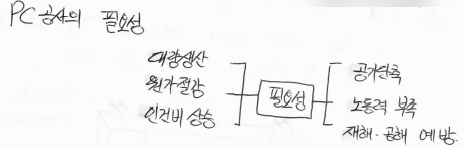 PC공사의 필요성
대량생산
원가절감
인건비 상승
필요성
공기단축
노동력 부족
재해·공해 예방.